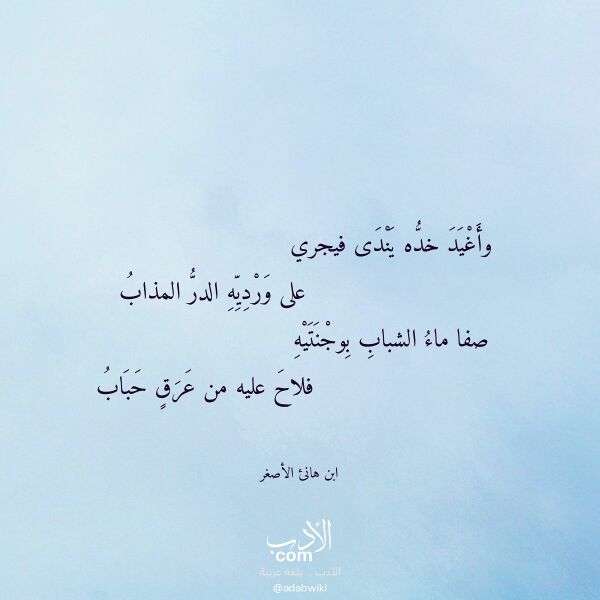 وأَغْيَدَ خدُّه يَنْدَى فيجري
على وَرْدِيِّهِ الدرُّ المذابُ
صفا ماءُ الشبابِ بِوجْنَتَيْهِ
فلاحَ عليه من عَرَقٍ حَبَابُ
ابن هانئ الأصغر
الأدب
com
الأدب .. بلغة عربية
@adabwiki